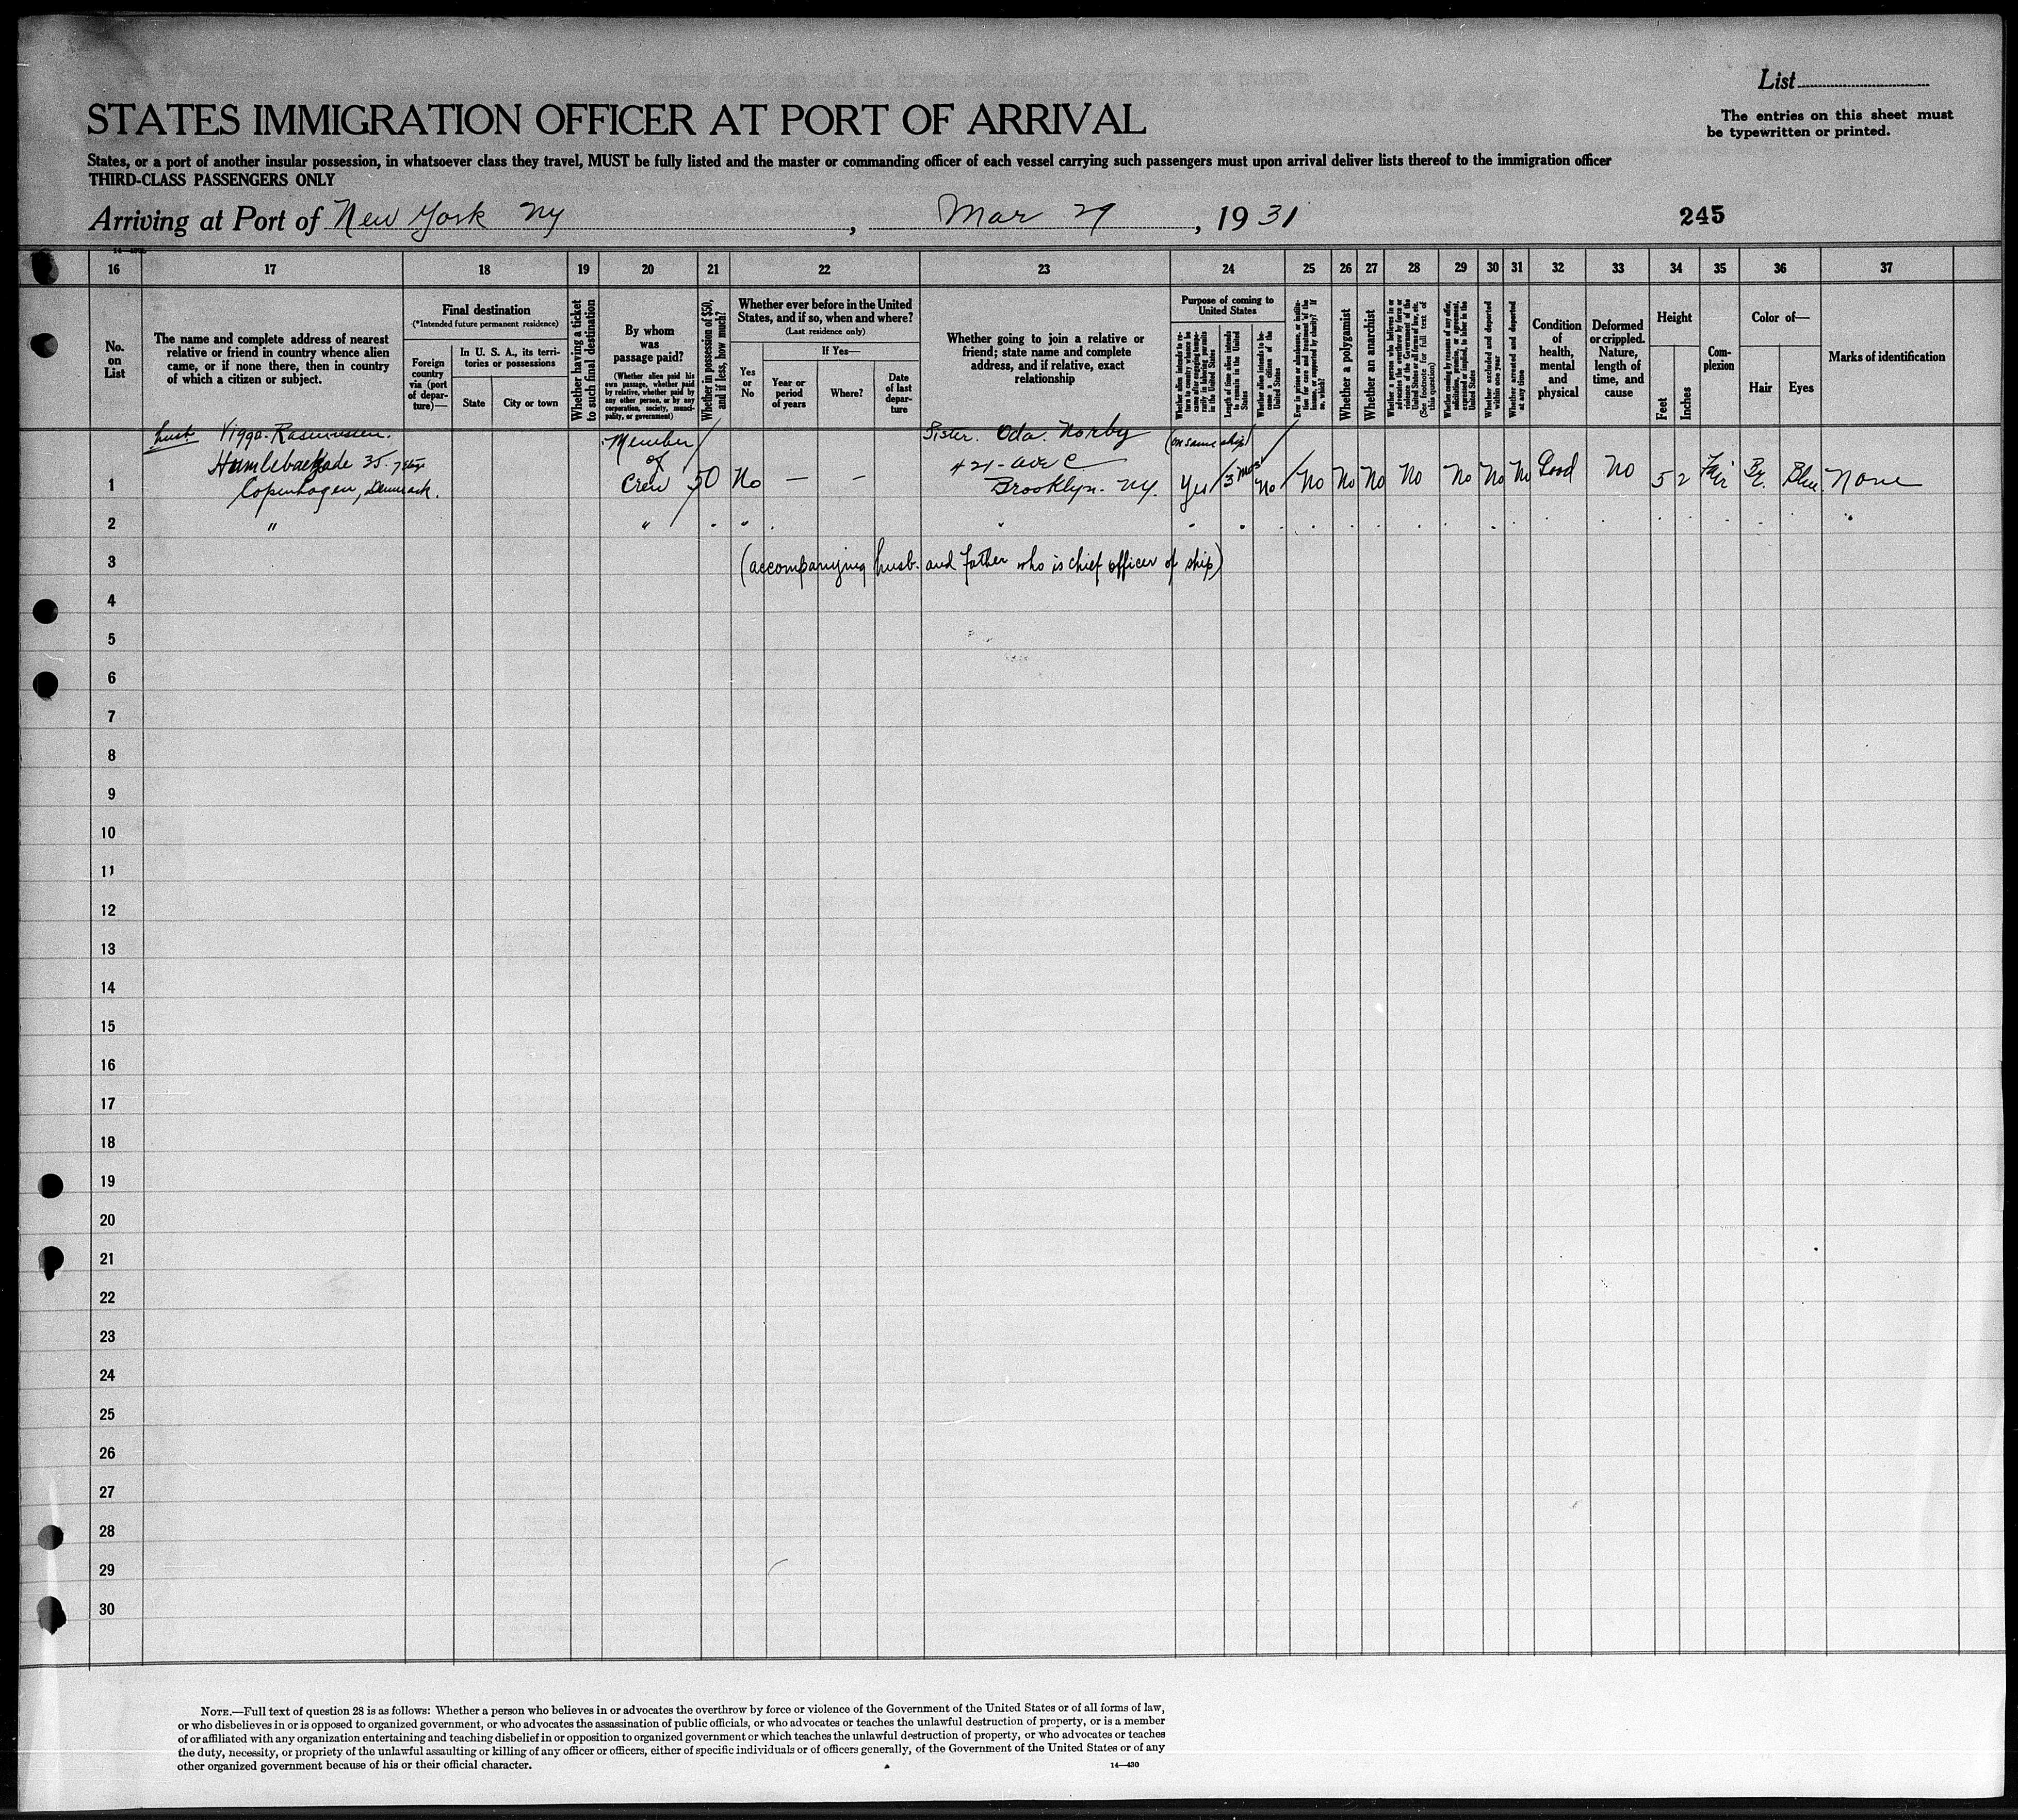 List
The entries on this sheet must
be typewritten or printed.
STATES IMMIGRATION OFFICER AT PORT OF ARRIVAL
States, or a port of another insular possession, in whatsoever class they travel, MUST be fully listed and the master or commanding officer of each vessel carrying such passengers must upon arrival deliver lists thereof to the immigration officer
THIRD-CLASS PASSENGERS ONLY
Arriving at Port of New York NY, Mar 29, 1931 245
16 17 18 19 20 21 22 23 24 25 26 27 28 29 30 31 32 33 34 35 36 37
No.
on
List
The name and complete address of nearest
relative or friend in country whence alien
came, or if none there, then in country
of which a citizen or subject.
Final destination
(*Intended future permanent residence)
Foreign
country
via (port
of depar-
ture)—
In U. S. A., its terri-
tories or possessions
State
City or town
Whether having a ticket
to such final destination
By whom
was
passage paid?
(Whether alien paid his
own passage, whether paid
by relative, whether paid by
any other person, or by any
corporation, society, munici-
pality, or government)
Whether in possession of $50,
and if less, how much?
Whether ever before in the United
States, and if so, when and where?
(Last residence only)
Yes
or
No
If Yes—
Year or
period
of years
Where?
Date
of last
depar-
ture
Whether going to join a relative or
friend; state name and complete
address, and if relative, exact
relationship
Purpose of coming to
United States
Whether alien intends to re-
turn to country whence he
came after engaging tempo-
rarily in laboring pursuits
in the United States
Length of time alien intends
to remain in the United
States
Whether alien intends to be-
come a citizen of the
United States
Ever in prison or almshouse, or institu-
tion for care and treatment of the
insane, or supported by charity? If
so, which?
Whether a polygamist
Whether an anarchist
Whether a person who believes in or
advocates the overthrow by force or
violence of the Government of the
United States or all forms of law, etc.
(See footnote for full text of
this question)
Whether coming by reasons of any offer,
solicitation, promise, or agreement,
expressed or implied, to labor in the
United States
Whether excluded and deported
within one year
Whether arrested and deported
at any time
Condition
of
health,
mental
and
physical
Deformed
or crippled.
Nature,
length of
time, and
cause
Height
Feet
Inches
Com-
plexion
Color of—
Hair
Eyes
Marks of identification
husb. Viggo Rasmussen.
35
Copenhagen, Denmark.
Member
of
Crew
50 No — —
Sister. Oda. Norby (on same ship)
421 - Ave C
Brooklyn. NY.
Yes 3 mos No No No No No No No No Good No 5 2 Fair Br. Blue. None
1
2 " " " " "
3 (accompanying husb. and father who is chief officer of ship)
4
5
6
7
8
9
10
11
12
13
14
15
16
17
18
19
20
21
22
23
24
25
26
27
28
29
30
NOTE.—Full text of question 28 is as follows: Whether a person who believes in or advocates the overthrow by force or violence of the Government of the United States or of all forms of law,
or who disbelieves in or is opposed to organized government, or who advocates the assassination of public officials, or who advocates or teaches the unlawful destruction of property, or is a member
of or affiliated with any organization entertaining and teaching disbelief in or opposition to organized government or which teaches the unlawful destruction of property, or who advocates or teaches
the duty, necessity, or propriety of the unlawful assaulting or killing of any officer or officers, either of specific individuals or of officers generally, of the Government of the United States or of any
other organized government because of his or their official character.
14—430